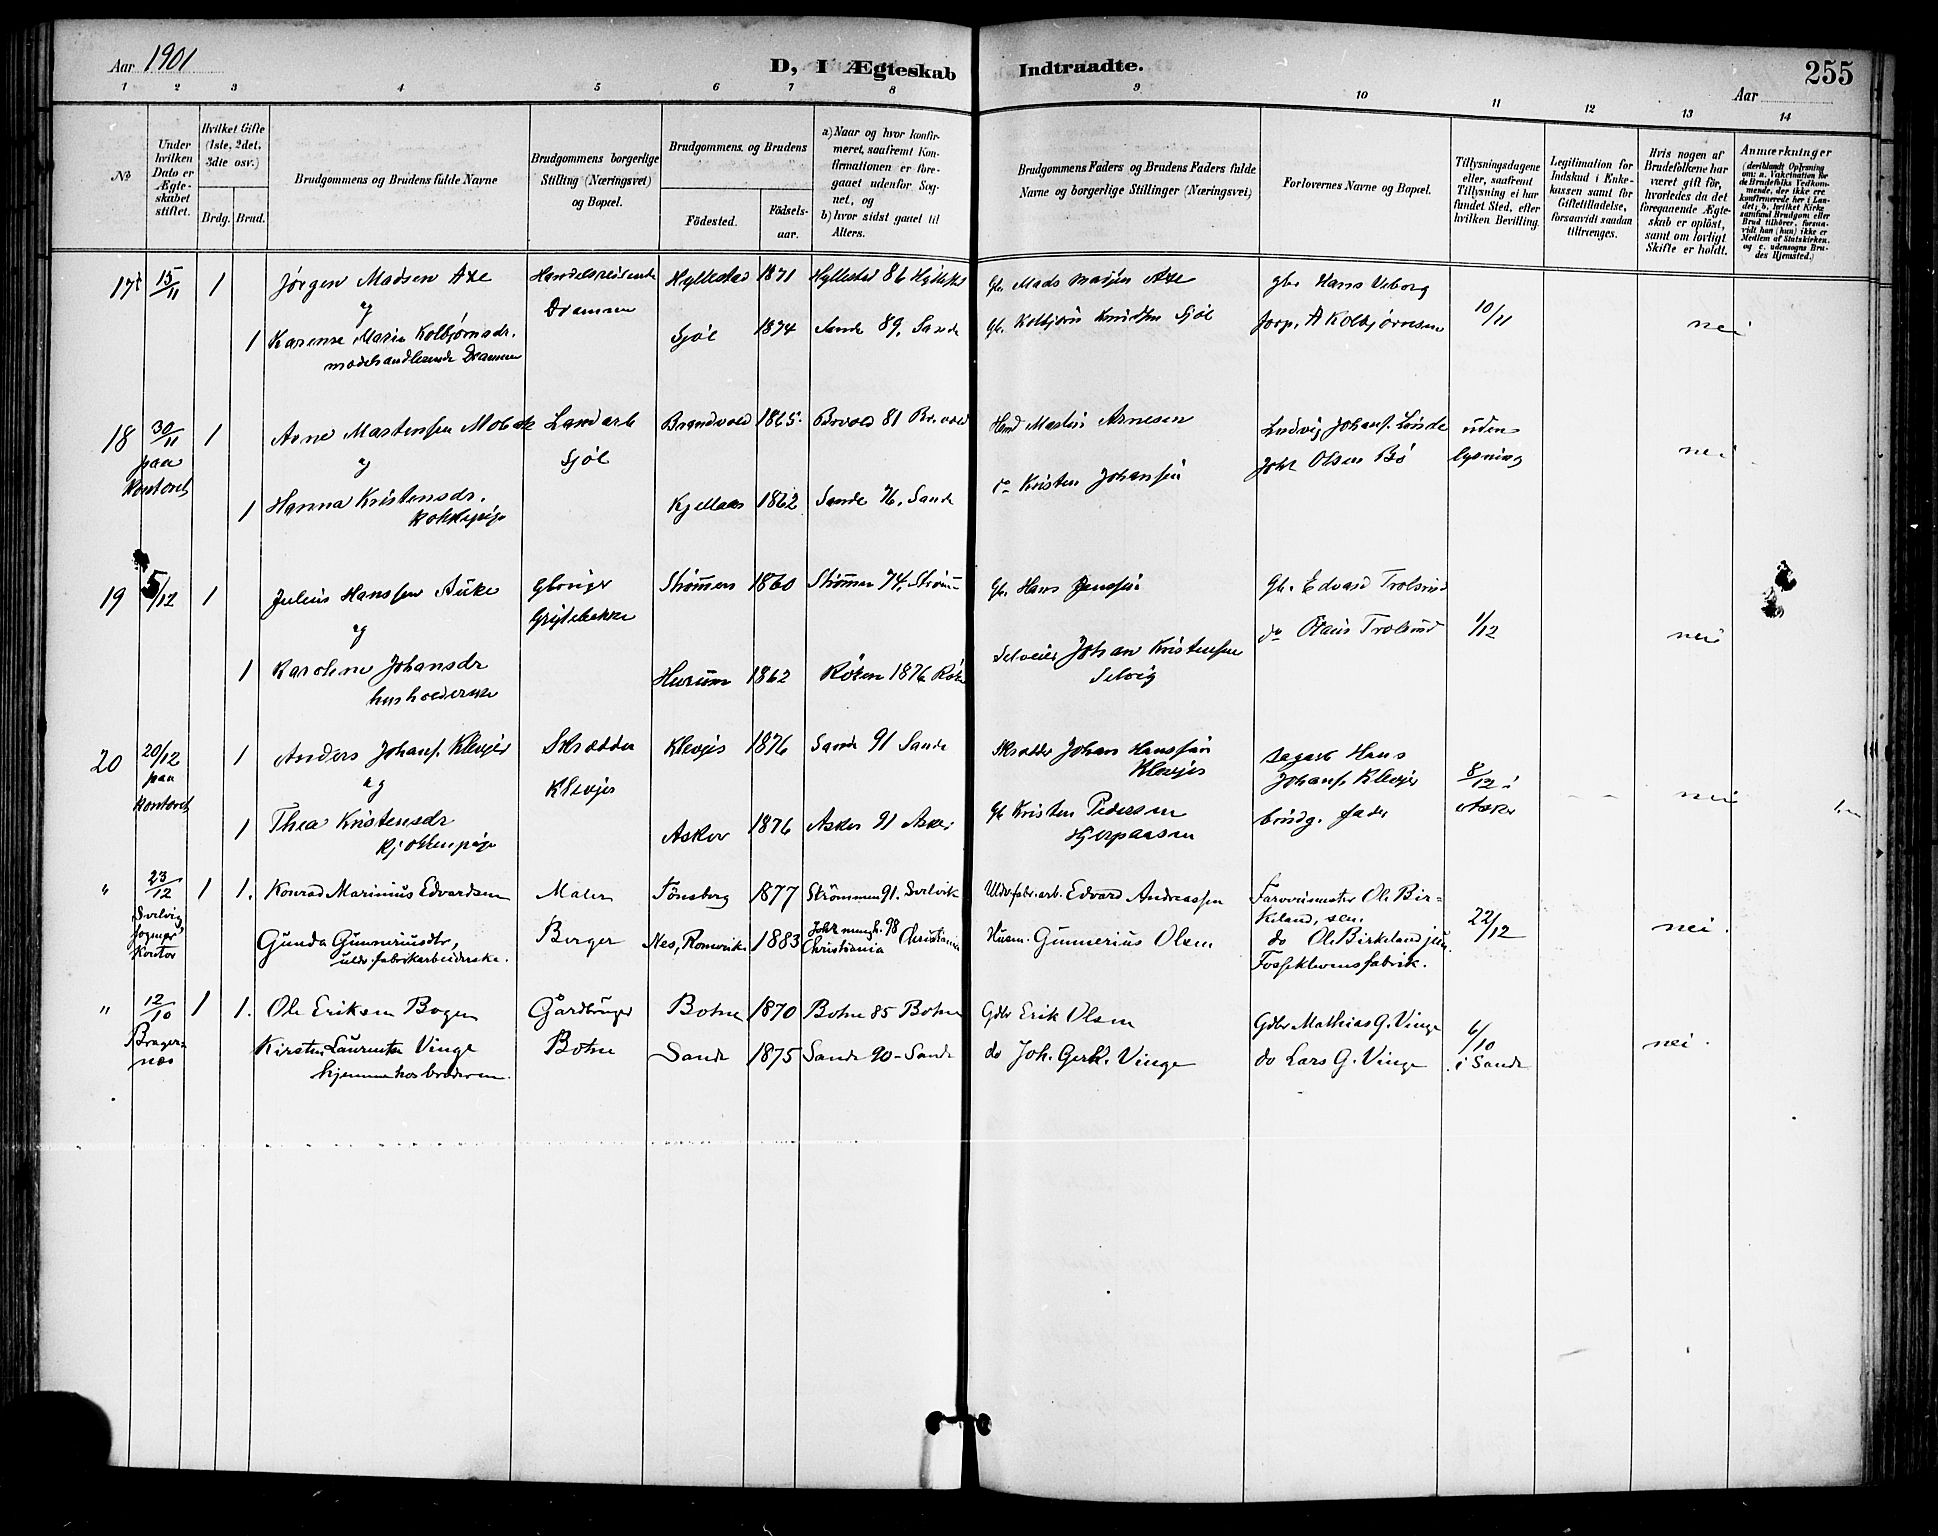 Aar 1901
D, I Ægteskab Indtraadte.
Aar
255
1 2 3 4 5 6 7 8 9 10 11 12 13 14
No
Under hvilken Dato er Ægteskabet stiftet.
Hvilket Gifte (1ste, 2det, 3die osv.)
Brdg. Brud.
Brudgommens og Brudens fulde Navne
Brudgommens borgerlige Stilling (Næringsvei) og Bopæl.
Brudgommens og Brudens
Fødested.
Fødsels-aar.
a) Naar og hvor konfirmeret, saafremt Konfirmationen er foregaaet udenfor Sognet, og
b) hvor sidst gaaet til Alters.
Brudgommens Faders og Brudens Faders fulde Navne og borgerlige Stillinger (Næringsvei)
Forlovernes Navne og Bopæl.
Tillysningsdagene eller, saafremt Tillysning ei har fundet Sted, efter hvilken Bevilling.
Legitimation for Indskud i Enkekassen samt for Giftetilladelse, forsaavidt saadan tiltrænges.
Hvis nogen af Brudefolkene har været gift før, hvorledes da det foregaaende Ægteskab er opløst, samt om lovligt Skifte er holdt.
Anmærkninger
(deriblandt Oplysning om: a. Vakcination for de Brudefolks Vedkommende, der ikke ere konfirmerede her i Landet; b. hvilket Kirkesamfund Brudgom eller Brud tilhører, forsaavidt han (hun) ikke er Medlem af Statskirken, og c. udensogns Brudes Hjemsted.)
17 15/11 1 Jørgen Madsen Axe Handelsreisende Hyllestad 1871 Hyllestad 86 Gbr. Mads Axe gbr Hans Viborg
og Drammen
1 Karense Marie Kolbjørnsdr. Sjøl 1874 Sande 89, Sande Gbr. Kolbjørn Knudsen Sjøl A Kolbjørnsen 10/11 nei
modehandlerinde Drammen
18 30/11 1 Arne Martinsen Landarb Brandvold 1865 81 Martin Arnesen Ludvig Johans. uden
paa og Sjøl Johs Olsen Bø lysning nei
Kontoret 1 Hanna Kristensdr. Kjellaas 1862 Sande 76, Sande do Kristen Johansen
Kokkepige
19 5/12 1 Julius Hanssen Gbruger Strømmen 1860 Strømmen 74, Strømm Gbr. Hans Jenssen Gbr. Edvard Trolsrud
og Grytebakke do Trolsrud 1/12 nei
1 Karoline Johansdr Hurum 1862 Røken 1876 Røken Selveier Johan Kristensen
husholderske Selvig
20 20/12 1 Anders Johans. Klevjer Skrædder Klevjer 1876 Sande 91 Sande Skrædder Johan Hanssen Hans
paa og Klevjer Klevjer Johans. Klevjer 8/12 i
Kontoret 1 Thea Kristensdr Asker 1876 Asker 91 Asker Gb Kristen Pedersen brudg. fader Asker nei
Kjøkkenpige Hjerpaasen
" 23/12 1 1. Konrad Marinius Edvardsen Maler Tønsberg 1877 Strömmen 91. Svelvik Uldv.fabr.arb. Edvard Andreassen Farverimester Ole Birkeland, sen.
Svelvig Sognepr. Kontor Gunda Gunneriusdtr, Berger Nes, Romerike 1883 Christiania 98 Christiania Husm. Gunnerius Olsen do Ole Birkeland jun. 22/12 nei.
uldv. fabrikarbeiderske. Fossekleven sfabrik.
" 12/10 1 1. Ole Eriksen Bogen Gårdbruger Botne 1870 Botne 85 Botne Gdbr Erik Olsen Gdbr Mathias G. Vinge 6/10
Bragernæs Kirstine Laurentze Vinge Botne Sande 1875 Sande 90 - Sande do Joh. Gerh. Vinge do Lars G. Vinge i Sande nei.
hjemme hos broderen.